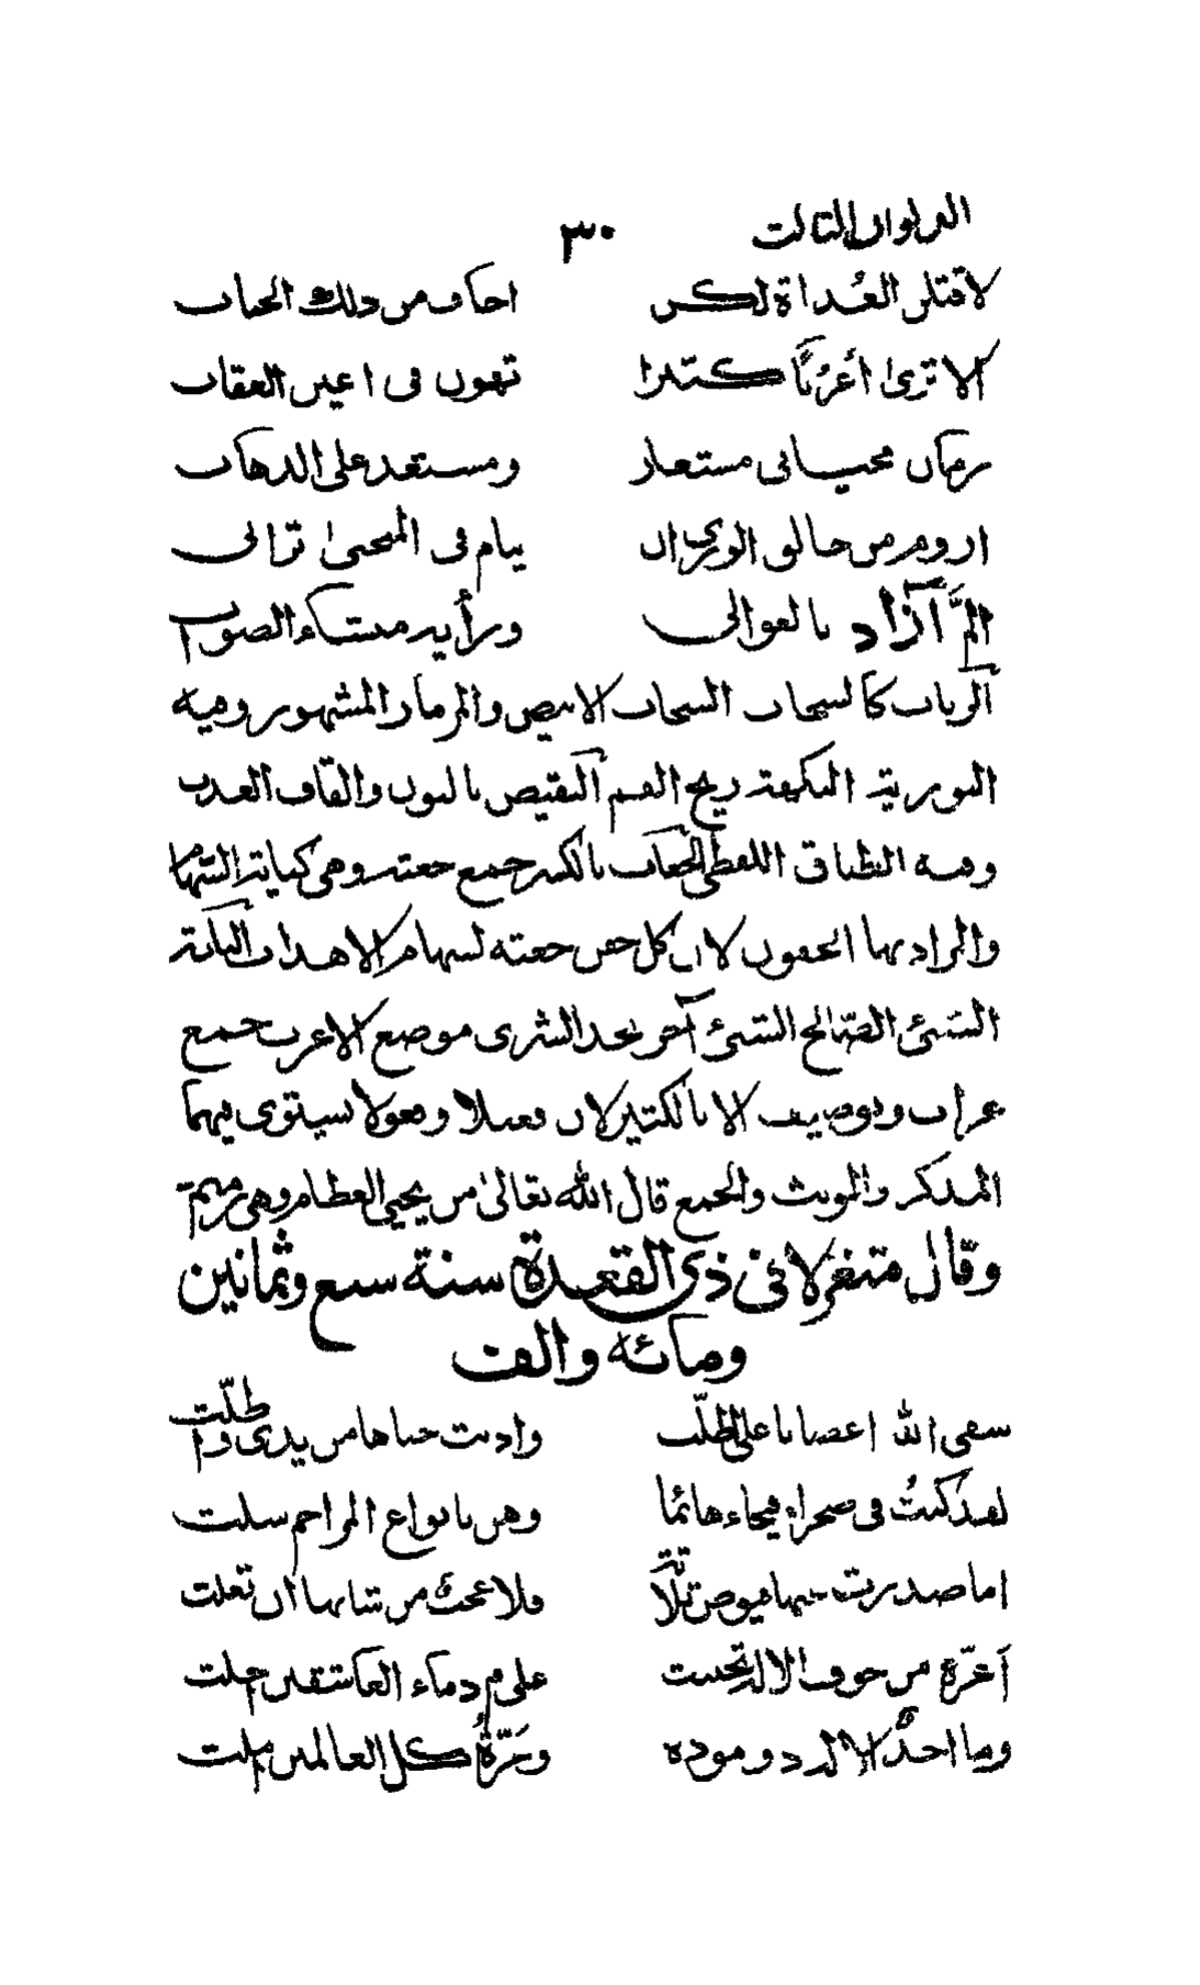 الديوان الثالث ٣٠
لا قتلن العداة لكن اخاف من ذلك الجناب
الا ترى أعربًا كثيرا تهون في اعين العقاب
زمان محياني مستعار ومستعد على الذهاب
اروم من خالق الورى ان ينام في المنحنى ترابي
المَّ آزاد بالعوالي ورأيه منتهاء الصواب
الرباب كالسحاب السحاب الابيض والمزمار المشهور وفيه
التورية النكهة ريح الفم النقيص بالنون والقاف العذب
وفيه الطباق اللفظي الجعاب بالكسر جمع جعبته وهي كنانة السهام
والمراد بها الجفون لان كل جفن جعبته لسهام الاهداب
الشئ الصالح الشئ آخر نجد الشرى موضع الاعرب جمع
عراب وتوصيف الا بالكثير لان فعيلا وفعولا يستوي فيهما
المذكر والمونث والجمع قال الله تعالى من يحيي العظام وهي رميم
وقال متغزلا في ذي القعدة سنة سبع وثمانين
ومائة والف
سقى الله اغصانا على اظلّت وادنت جناها من يدي واطلّت
لقد كنتُ في صحراء فيحاء هائما وهن بانواع المراحم سلت
اما صدرت منها فيوض ثلاثة فلا عجب من شانها ان تعلت
أعزّة من خوف الاله تجنبت على دماء العاشقين
وما احدٌ الا لديه ومودة وعزّةُ كل العالمين ملت